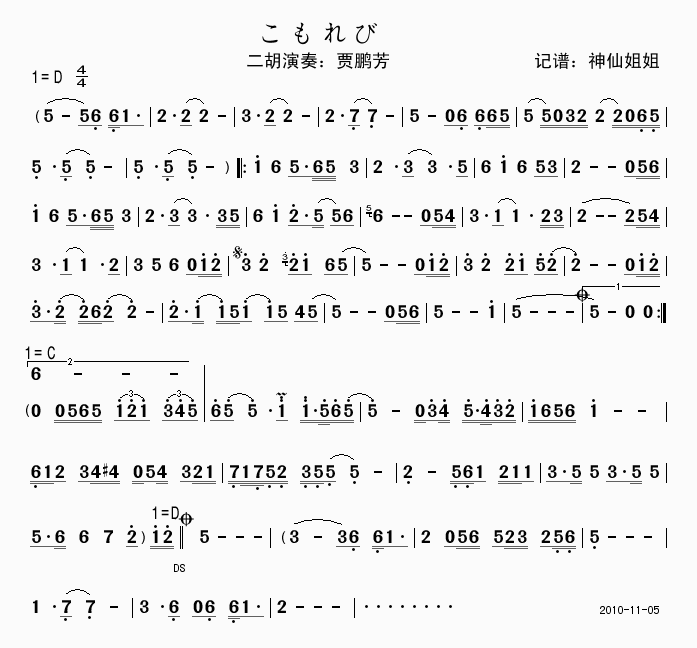 こもれび
二胡演奏：贾鹏芳 记谱：神仙姐姐
1=D 4/4
(5 - 56 61· | 2·2 2 - | 3·2 2 - | 2·7 7 - | 5 - 06 665 | 5 5032 2 2065 |
5 ·5 5 - | 5 ·5 5 - ) ‖: 1 6 5·65 3 | 2 ·3 3 ·5 | 6 1 6 53 | 2 - - 056 |
1 6 5·65 3 | 2·3 3 · 35 | 6 1 2·5 56 | 5 6 - - 054 | 3·1 1 ·23 | 2 - - 254 |
3 ·1 1 ·2 | 3 5 6 012 | 3 2 3 21 65 | 5 - - 012 | 3 2 21 52 | 2 - - 012 |
3·2 262 2 - | 2·1 151 15 45 | 5 - - 056 | 5 - - 1 | 5 - - - | 1 5 - 0 0 :‖
1=C
2
6 - - -
(0 0565 3 121 3 345 | 65 5 ·1 1·565 | 5 - 034 5·432 | 1656 1 - - |
612 34#4 054 321 | 71752 355 5 - | 2 - 561 211 | 3·5 5 3·5 5 |
5·6 6 7 2) 1=D 12 ‖ 5 - - - | (3 - 36 61· | 2 056 523 256 | 5 - - - |
DS
1 ·7 7 - | 3 ·6 06 61· | 2 - - - | ········
2010-11-05